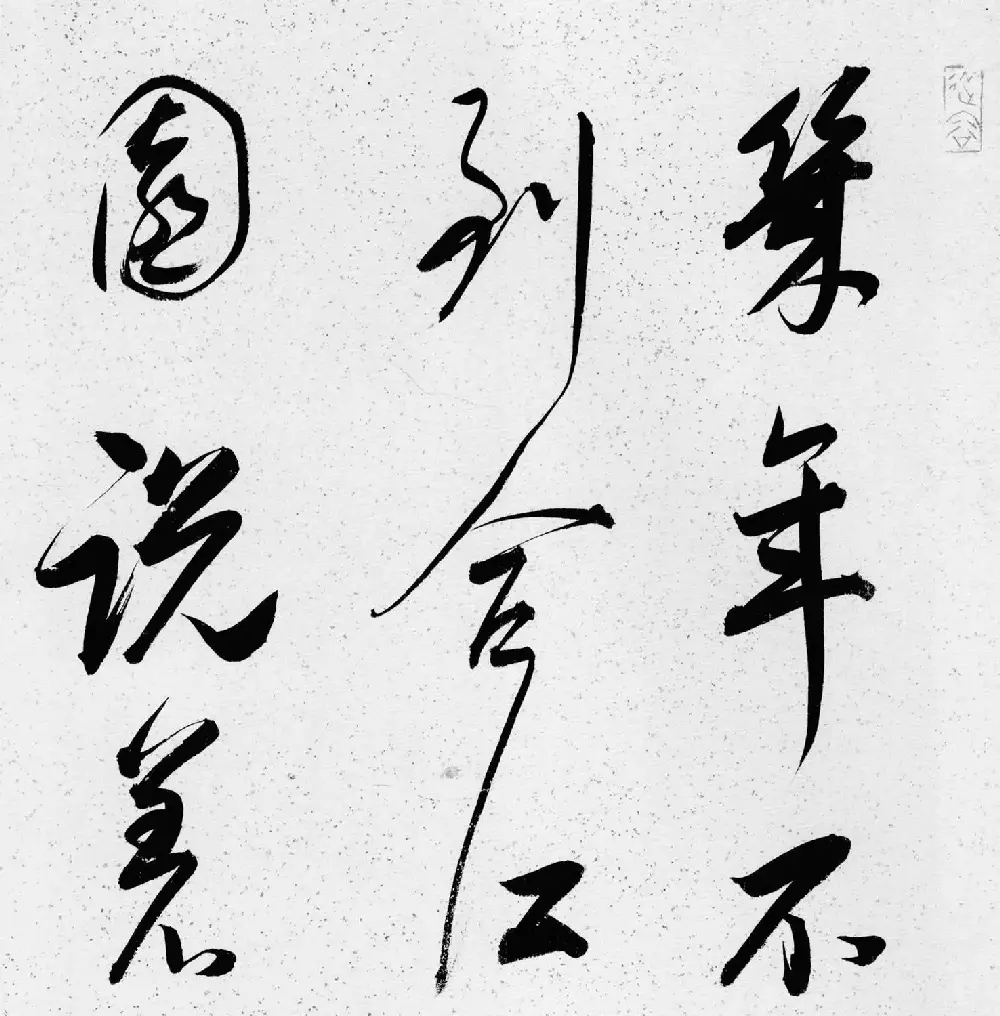 幾年不
到合江
園說着